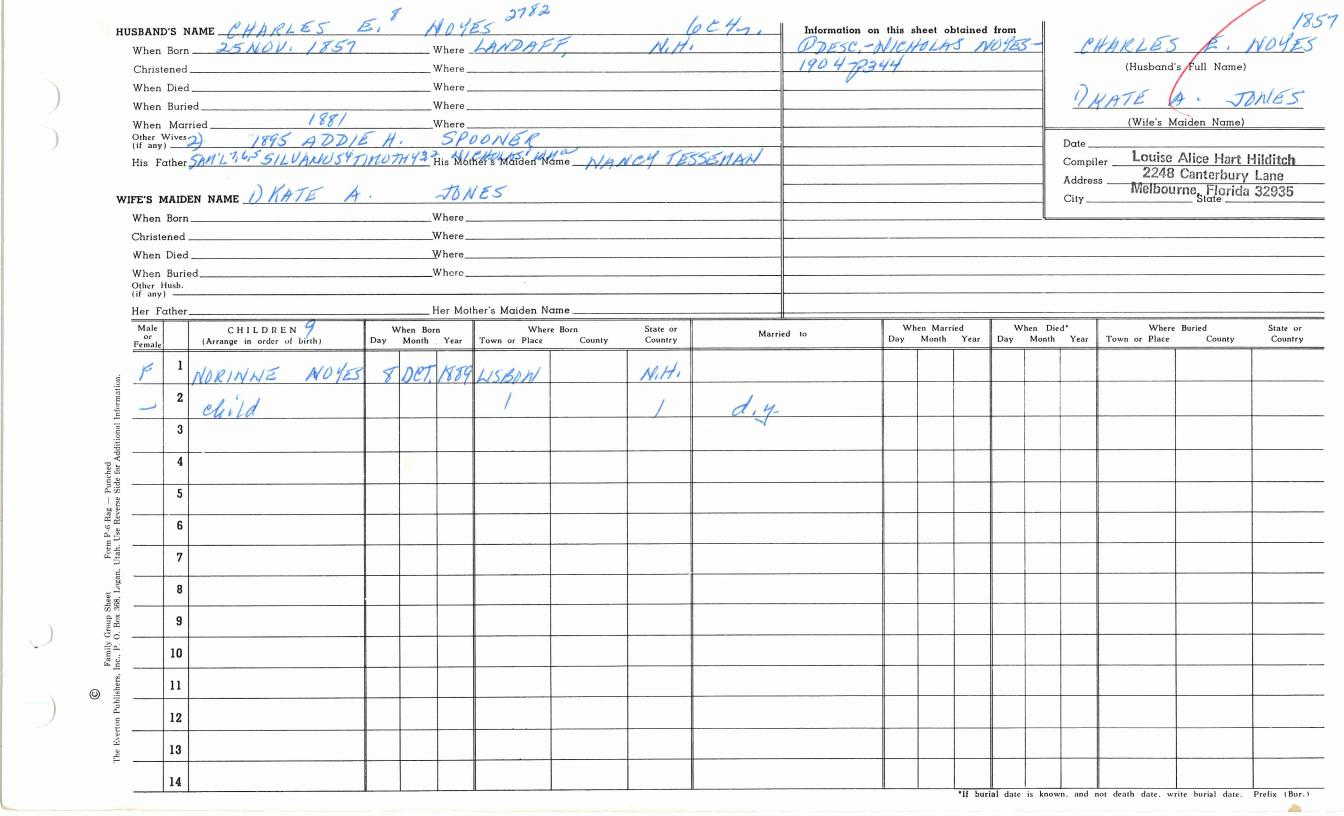 HUSBAND'S NAME CHARLES E. 8 NOYES 2782
When Born 25 NOV. 1857 Where LANDAFF, N.H.
Christened Where
When Died Where
When Buried Where
When Married 1881 Where
Other Wives (if any) 2) 1895 ADDIE H. SPOONER
His Father SAM'L 7,6,5 SILVANUS 4 TIMOTHY 3 2 NICHOLAS His Mother's Maiden Name NANCY TESSEMAN
WIFE'S MAIDEN NAME 1) KATE A. JONES
When Born Where
Christened Where
When Died Where
When Buried Where
Other Husb. (if any)
Her Father Her Mother's Maiden Name
Information on this sheet obtained from
① DESC.-NICHOLAS NOYES-
1904 p344
1857
CHARLES E. NOYES
(Husband's Full Name)
1) KATE A. JONES
(Wife's Maiden Name)
Date
Compiler Louise Alice Hart Hilditch
Address 2248 Canterbury Lane
Melbourne, Florida 32935
City State
Male or Female CHILDREN 9 (Arrange in order of birth) When Born Day Month Year Where Born Town or Place County State or Country Married to When Married Day Month Year When Died* Day Month Year Where Buried Town or Place County State or Country
F 1 NORINNE NOYES 8 OCT. 1889 LISBON N.H.
— 2 child 1 1 d.y.
3
4
5
6
7
8
9
10
11
12
13
14
*If burial date is known, and not death date, write burial date. Prefix (Bur.)
Family Group Sheet Form F-6 Rag — Punched
© The Everton Publishers, Inc., P. O. Box 368, Logan, Utah. Use Reverse Side for Additional Information.